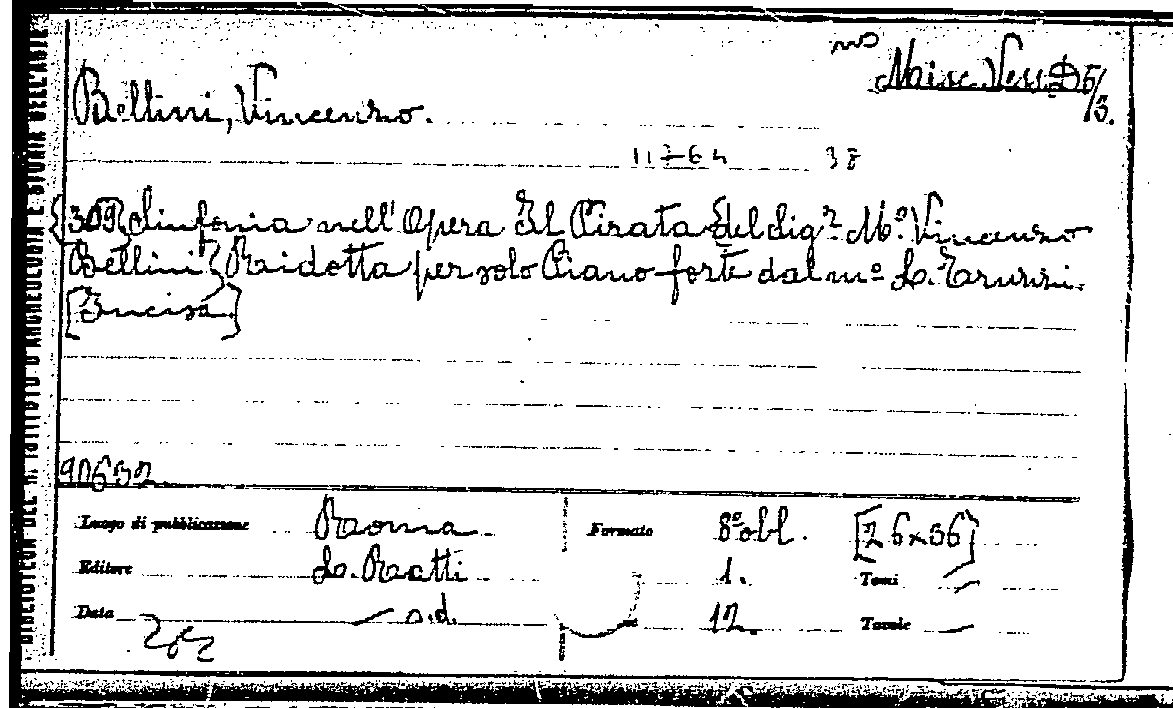 Misc. Vess. D 5/3.
Bellini, Vincenzo.
11764 38
{309} Sinfonia nell' Opera Il Pirata del Sigr. Mo. Vincenzo
Bellini} Ridotta per solo Piano-forte dal mo L. Truzzi.
[Incisa]
90632
Luogo di pubblicazione Roma. Formato 8º obl. [26x36]
Editore L. Ratti 1. Tomi —
Data — s.d. 12. Tavole —
BIBLIOTECA DEL R. ISTITUTO D'ARCHEOLOGIA E STORIA DELL'ARTE